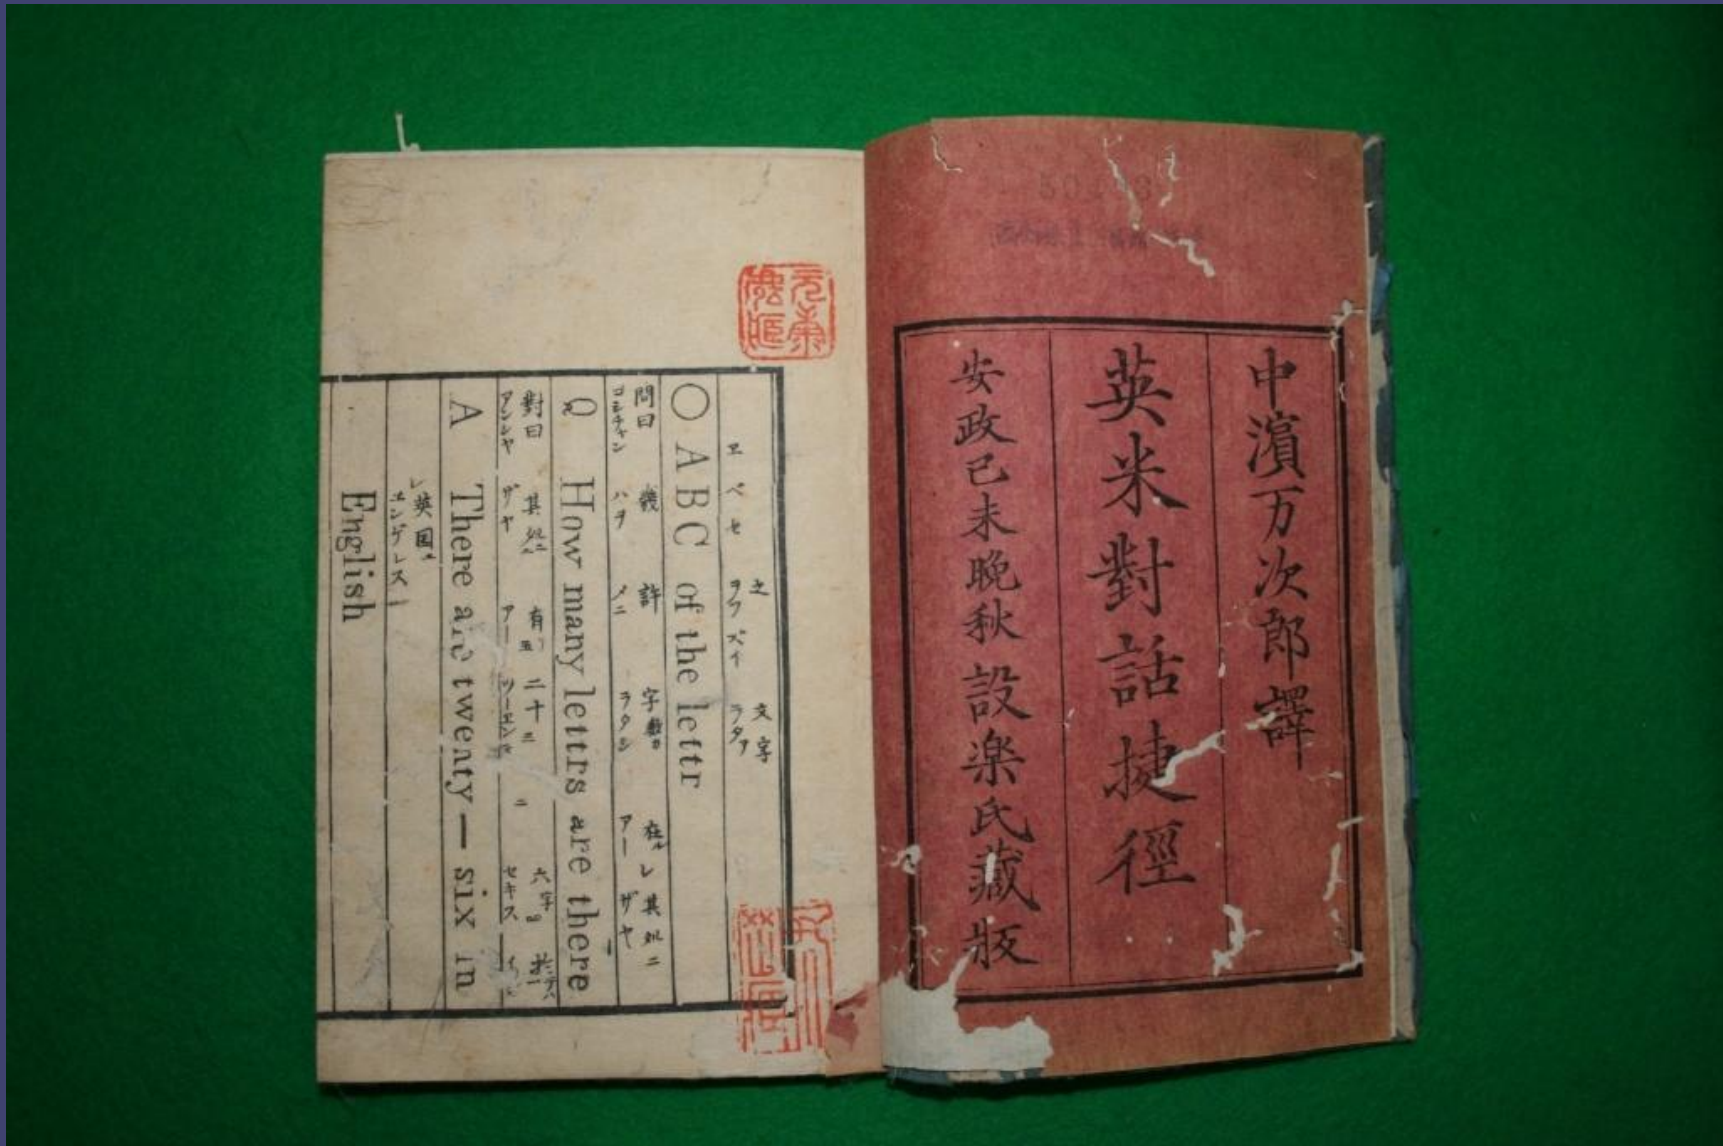 中濱万次郎譯
英米對話捷徑
安政己未晩秋 設楽氏藏版
之 文字
ヱ ベ セ ヲフ ズイ ラタア
○ ABC of the lettr
問曰 幾 許 字數 在 レ 其処ニ
コシチャン ハヲ メニ ラタシ アー ザヤ
Q How many lettrs are there
對曰 其処ニ 有 二十 六字
アンシヤ ザヤ アー セキス
A There are twenty — six in
レ 英国
エンゲレス
English